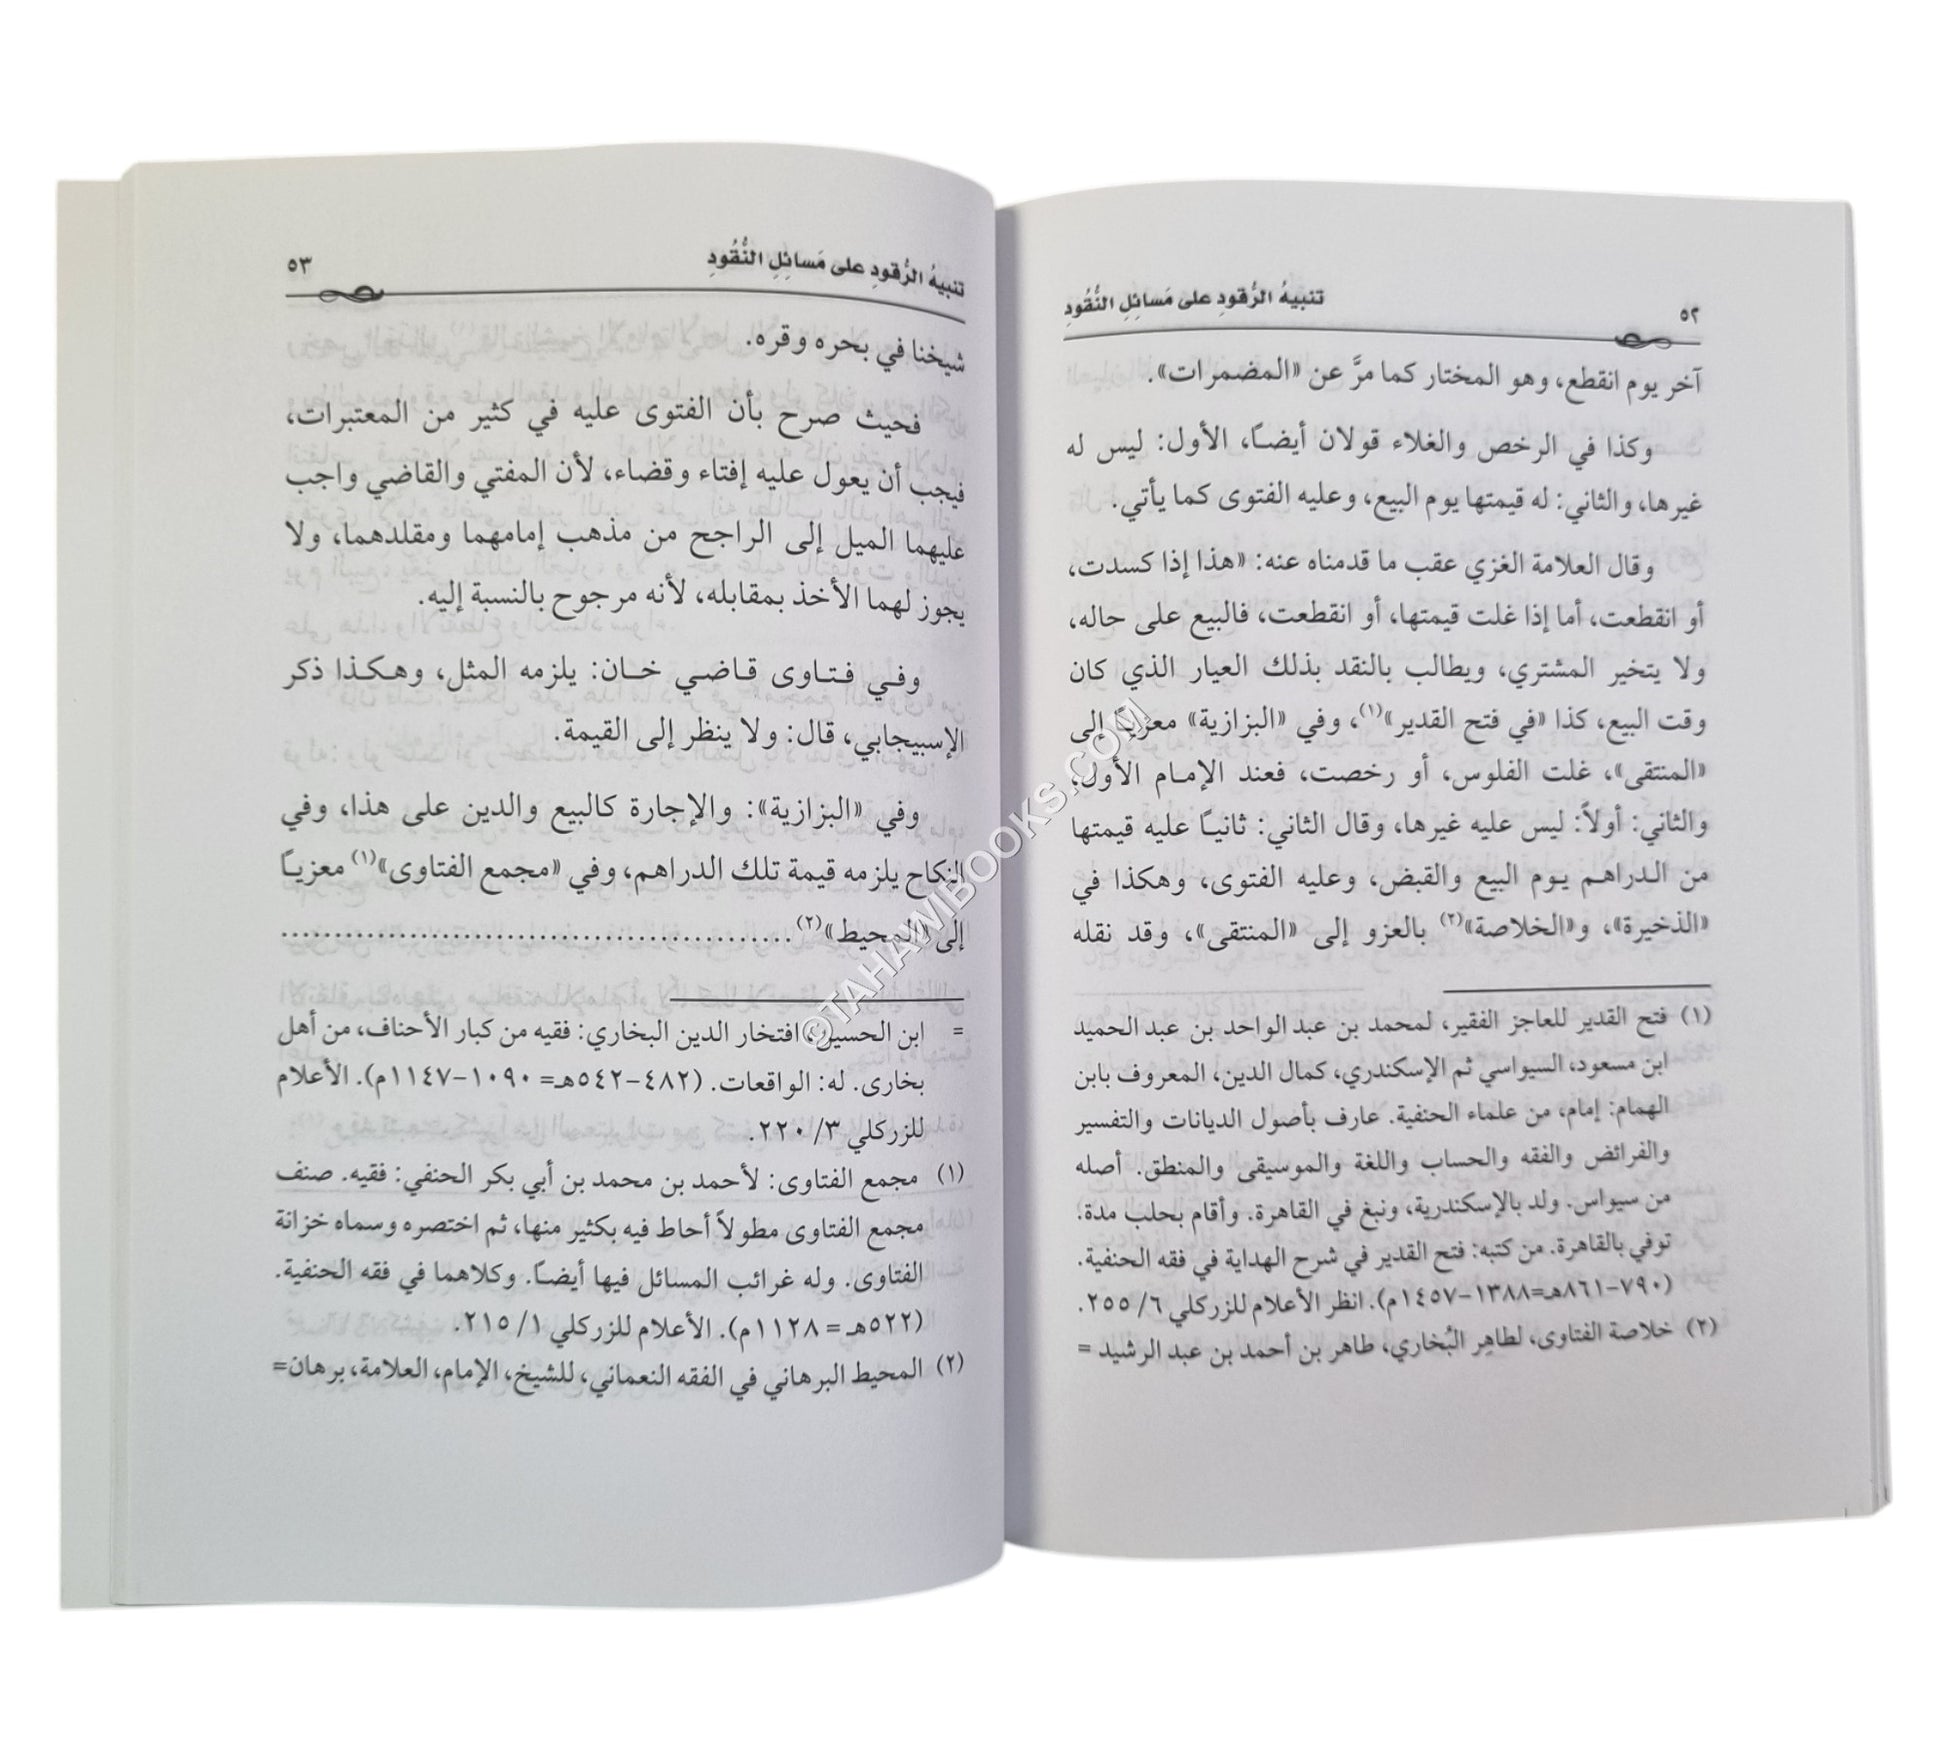 ٥٢
تنبيهُ الرُّقودِ على مَسائِلِ النُّقُودِ
آخر يوم انقطع، وهو المختار كما مرَّ عن «المضمرات».
وكذا في الرخص والغلاء قولان أيضاً، الأول: ليس له
غيرها، والثاني: له قيمتها يوم البيع، وعليه الفتوى كما يأتي.
وقال العلامة الغزي عقب ما قدمناه عنه: «هذا إذا كسدت،
أو انقطعت، أما إذا غلت قيمتها، أو انقطعت، فالبيع على حاله،
ولا يتخير المشتري، ويطالب بالنقد بذلك العيار الذي كان
وقت البيع، كذا «في فتح القدير»(١)، وفي «البزازية» معزياً إلى
«المنتقى»، غلت الفلوس، أو رخصت، فعند الإمام الأول،
والثاني: أولاً: ليس عليه غيرها، وقال الثاني: ثانياً عليه قيمتها
من الدراهم يوم البيع والقبض، وعليه الفتوى، وهكذا في
«الذخيرة»، و«الخلاصة»(٢) بالعزو إلى «المنتقى»، وقد نقله
(١) فتح القدير للعاجز الفقير، لمحمد بن عبد الواحد بن عبد الحميد
ابن مسعود، السيواسي ثم الإسكندري، كمال الدين، المعروف بابن
الهمام: إمام، من علماء الحنفية. عارف بأصول الديانات والتفسير
والفرائض والفقه والحساب واللغة والموسيقى والمنطق. أصله
من سيواس. ولد بالإسكندرية، ونبغ في القاهرة. وأقام بحلب مدة.
توفي بالقاهرة. من كتبه: فتح القدير في شرح الهداية في فقه الحنفية.
(٧٩٠-٨٦١هـ=١٣٨٨-١٤٥٧م). انظر الأعلام للزركلي ٦/ ٢٥٥.
(٢) خلاصة الفتاوى، لطاهِر البُخاري، طاهر بن أحمد بن عبد الرشيد =
تنبيهُ الرُّقودِ على مَسائِلِ النُّقُودِ
٥٣
شيخنا في بحره وقره.
فحيث صرح بأن الفتوى عليه في كثير من المعتبرات،
فيجب أن يعول عليه إفتاء وقضاء، لأن المفتي والقاضي واجب
عليهما الميل إلى الراجح من مذهب إمامهما ومقلدهما، ولا
يجوز لهما الأخذ بمقابله، لأنه مرجوح بالنسبة إليه.
وفي فتاوى قاضي خان: يلزمه المثل، وهكذا ذكر
الإسبيجابي، قال: ولا ينظر إلى القيمة.
وفي «البزازية»: والإجارة كالبيع والدين على هذا، وفي
النكاح يلزمه قيمة تلك الدراهم، وفي «مجمع الفتاوى»(١) معزياً
إلى «المحيط»(٢)................................................
= ابن الحسين، افتخار الدين البخاري: فقيه من كبار الأحناف، من أهل
بخارى. له: الواقعات. (٤٨٢-٥٤٢هـ= ١٠٩٠-١١٤٧م). الأعلام
للزركلي ٣/ ٢٢٠.
(١) مجمع الفتاوى: لأحمد بن محمد بن أبي بكر الحنفي: فقيه. صنف
مجمع الفتاوى مطولاً أحاط فيه بكثير منها، ثم اختصره وسماه خزانة
الفتاوى. وله غرائب المسائل فيها أيضاً. وكلاهما في فقه الحنفية.
(٥٢٢هـ = ١١٢٨م). الأعلام للزركلي ١/ ٢١٥.
(٢) المحيط البرهاني في الفقه النعماني، للشيخ، الإمام، العلامة، برهان=
©TAHAWIBOOKS.COM